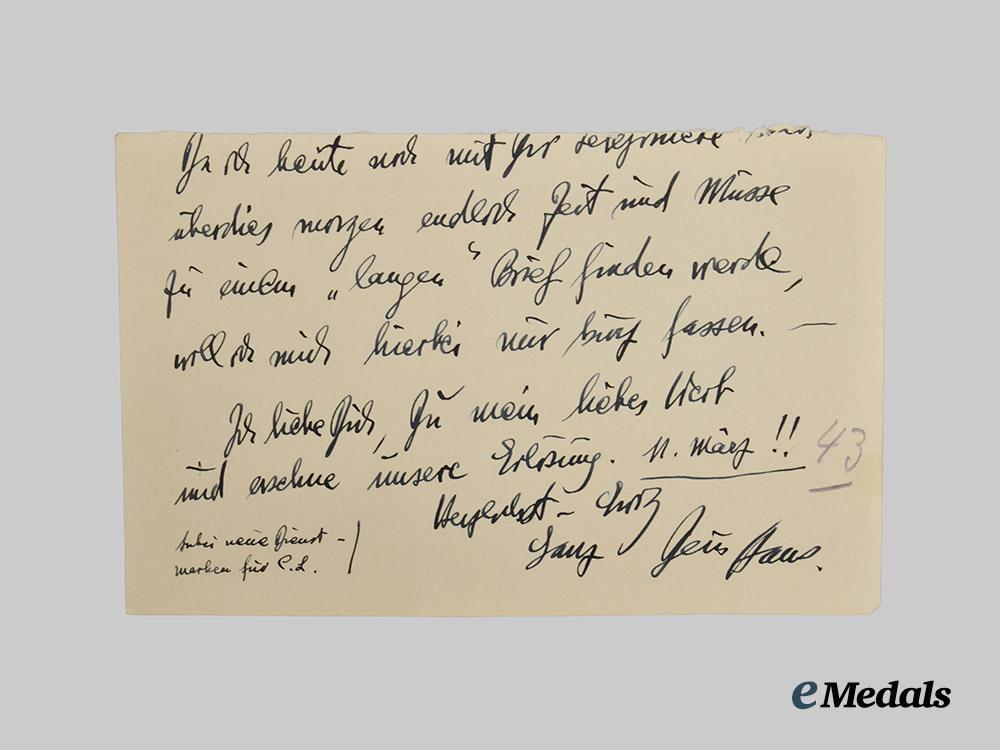 Da ich heute noch mit Dir telefoniere
überdies morgen endlich Zeit und Musse
zu einem „langen“ Brief finden werde,
will ich mich hierbei nur kurz fassen. —
Ich liebe Dich, Du mein liebes Weib
und ersehne unsere Erlösung. 11. März!! 43
Herzlichst –
Ganz Dein Hans.
Anbei neue Dienst-
marken für C.L.
eMedals